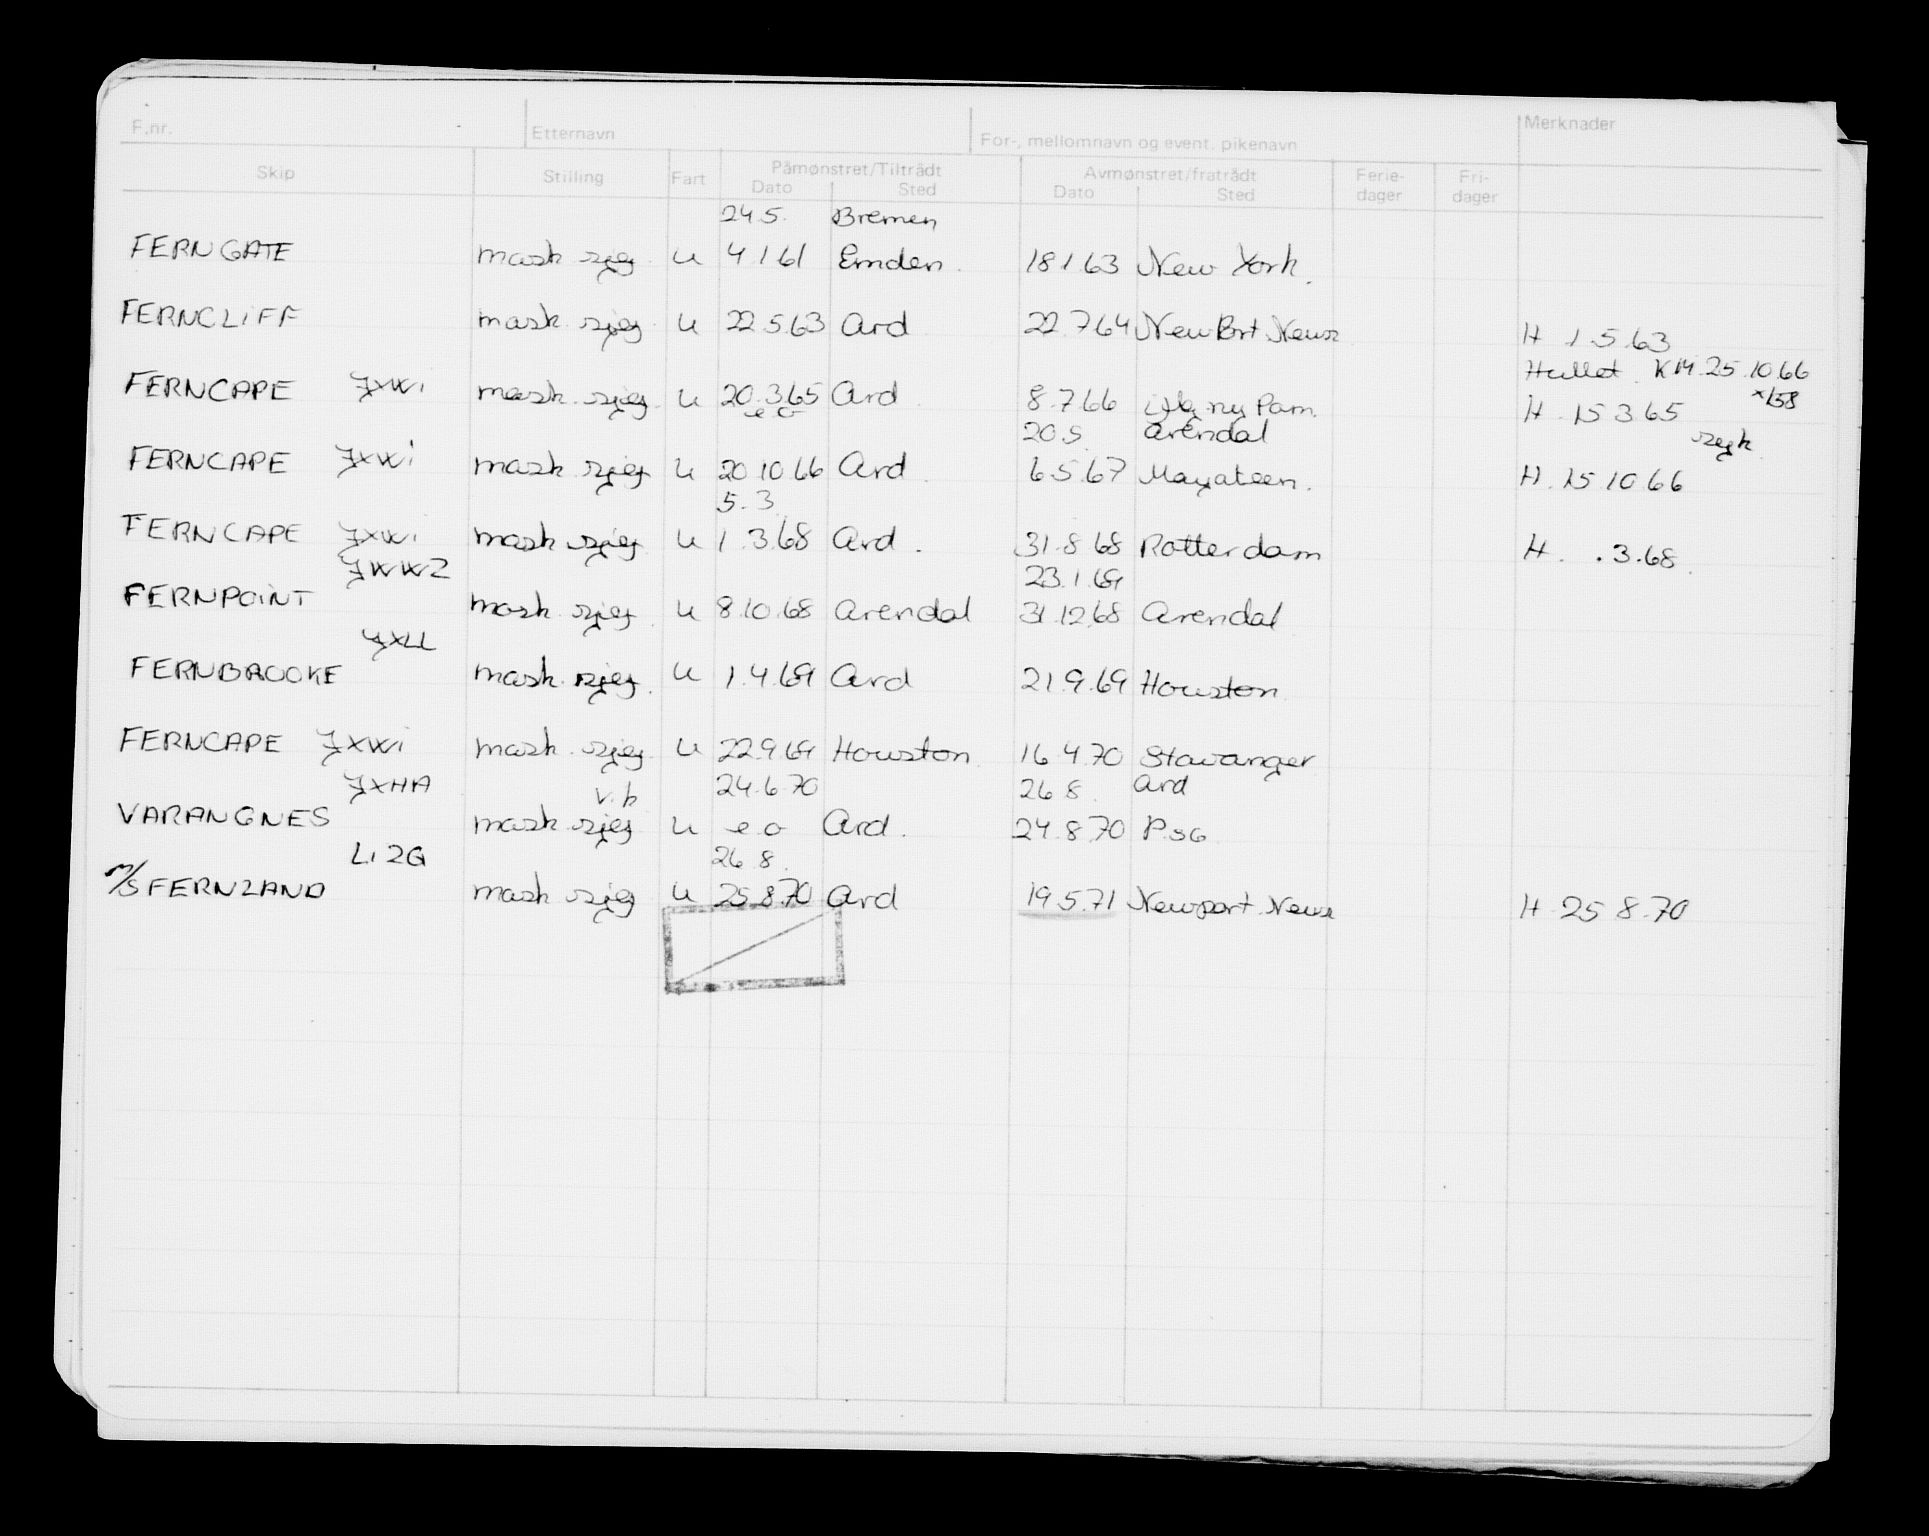 F.nr. Etternavn For-, mellomnavn og event. pikenavn Merknader
Skip Stilling Fart Påmønstret/Tiltrådt Avmønstret/fratrådt Ferie- Fri-
Dato Sted Dato Sted dager dager
24.5. Bremen
FERNGATE mask sjef u 4.1.61 Emden. 18.1.63 New York.
FERNCLIFF mask. sjef u 22.5.63 Ard 22.7.64 New Port News H 1.5.63
Hullet. KM. 25.10.66
FERNCAPE JXWI mask. sjef. u 20.3.65 Ard 8.7.66 ny Pam. H. 15 3.65 x/58
e.o 20.5 Arendal
FERNCAPE JXWI mask sjef u 20.10.66 Ard. 6.5.67 H. 15 10.66
5.3
FERNCAPE JXWI mask sjef u 1.3.68 Ard. 31.8.68 Rotterdam H. .3.68.
JWWZ 23.1.69
FERNPOINT mask. sjef u 8.10.68 Arendal 31.12.68 Arendal
JXLL
FERNBROOKE mask. sjef. u 1.4.69 Ard 21.9.69 Houston
FERNCAPE JXWI mask. sjef u 22.9.69 Houston 16.4.70 Stavanger
JXHA v.b 24.6.70 26 8. Ard
VARANGNES mask sjef u e o Ard. 24.8.70 P.so
LI2Q 26.8.
M/S FERNLAND mask sjef u 25.8.70 Ard 19.5.71 Newport News H. 25 8.70